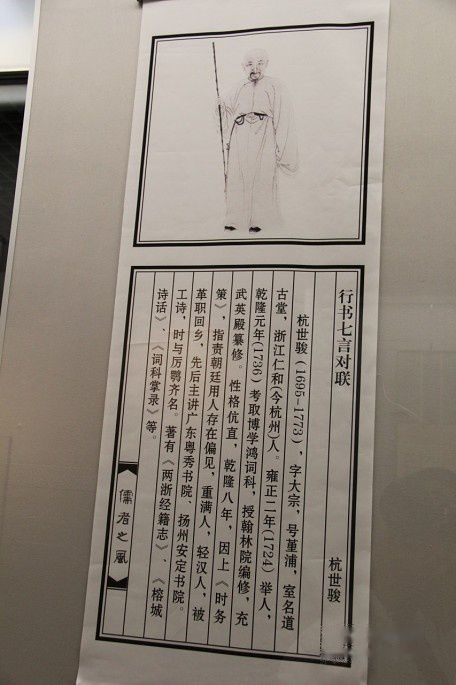 行书七言对联
杭世骏
杭世骏(1695-1773)，字大宗，号堇浦，室名道
古堂，浙江仁和(今杭州)人。雍正二年(1724)举人，
乾隆元年(1736)考取博学鸿词科，授翰林院编修，充
武英殿纂修。性格伉直，乾隆八年，因上《时务
策》，指责朝廷用人存在偏见，重满人，轻汉人，被
革职回乡，先后主讲广东粤秀书院、扬州安定书院。
工诗，时与厉鹗齐名。著有《两浙经籍志》、《榕城
诗话》、《词科掌录》等。
儒者之风